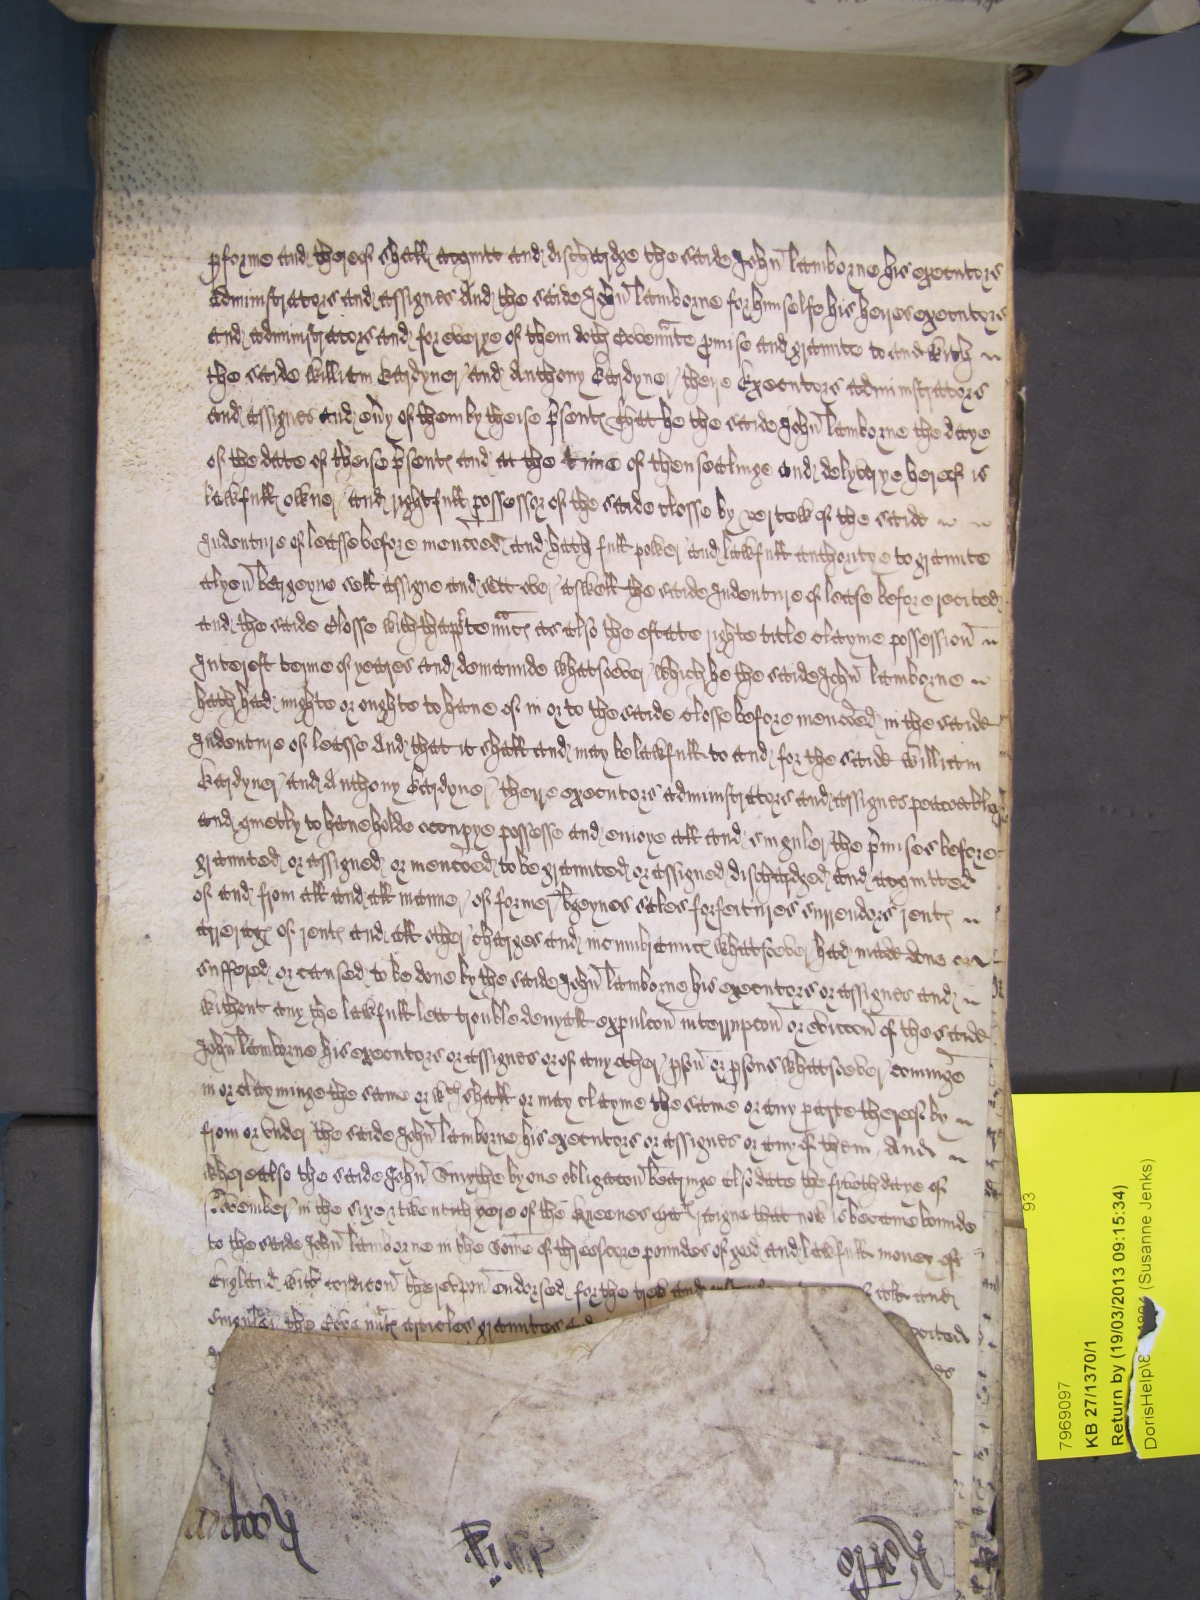 pforme and thereof shall acquitt and dischardge the saide John Lamborne his executors
administrators and assignes And the saide John Lamborne for himselfe his heyres executors
and administrators and for everye of them doth Covennte pmise and graunte to and with
the saide William Gardyner and Anthony Gardyner there Executors administrators
and assignes and evy of them by theise psentes That he the saide John Lamborne the daye
of the date of theise psentes and at the time of thensealinge and delyverye hereof is
lawfull owner and rightfull possessor of the saide Closse by vertew of the saide
Indenture of leasse before menconed and hath full power and lawfull authoritye to graunte
alyen bargeyne sell assigne and sett over aswell the saide Indenture of lease before recited
and the saide Closse with thapptennces as also the estate righte title clayme possession
Interest terme of yeares and demaunde whatsoever which he the saide John Lamborne
hath had mighte or oughte to have of in or to the saide Closse before menconed in the saide
Indenture of leasse And that it shall and may be lawfull to and for the saide William
Gardyner and Anthony Gardyner theire executors administrators and assignes peaceablie
and quietly to have holde occupye possesse and enioye all and singuler the pmises before
graunted or assigned or menconed to be graunted or assigned dischardged and acquitted
of and from all and all manner of former bgeynes sales forfeitures surrendors rentes
arrerages of rentes and all other charges and incumbraunces whatsoever had made done or
suffered or caused to be done by the saide John Lamborne his executors or assignes and
without any the lawfull lett trouble denyall expulcon interrupcon or eviccon of the saide
John Lamborne his executors or assignes or of any other pson or psons whatsoever comminge
in or clayminge the same or wch shall or may clayme the same or any parte thereof by
from or under the saide John Lamborne his executors or assignes or any of them And
where also the saide John Smythe by one obligacon bearinge also date the fiveth daye of
November in the sixe & twentith yere of the Queenes matis raigne that now is became bounde
to the saide John Lamborne in the Some of threescore poundes of good and lawfull money of
England with condicon thereupon endorsed for the trew and all and
singuler the Covenntes articles grauntes and recited
7969097
KB 27/1370/1
Return by (19/03/2013 09:15:34)
DorisHelp\ (Susanne Jenks)
93